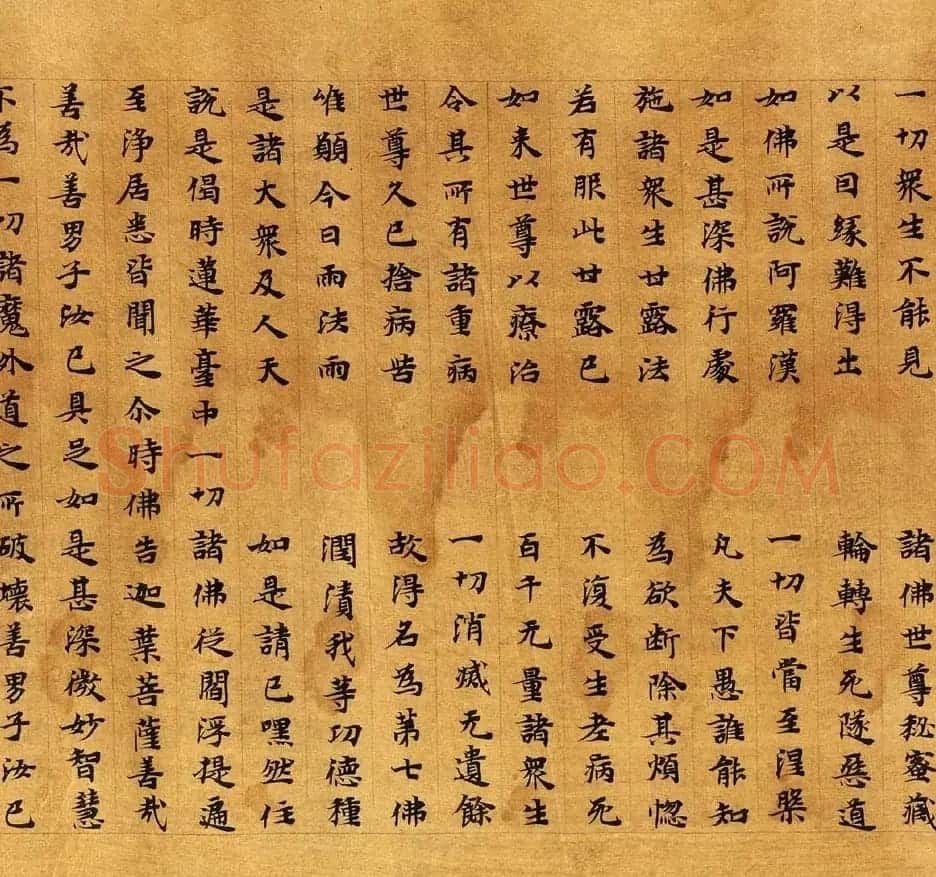 一切衆生不能見 諸佛世尊秘蜜藏
以是因緣難得出 輪轉生死隧惡道
如佛所說阿羅漢 一切皆當至涅槃
如是甚深佛行處 凡夫下愚誰能知
施諸衆生甘露法 為欲断除其煩惚
若有服此甘露已 不復受生老病死
如来世尊以療治 百千无量諸衆生
令其所有諸重病 一切消滅无遺餘
世尊久已捨病苦 故得名為第七佛
唯願今日雨法雨 潤漬我等功德種
是諸大衆及人天 如是請已嘿然住
說是偈時蓮華臺中一切諸佛從閻浮提遍
至淨居悉皆聞之尒時佛告迦葉菩薩善哉
善哉善男子汝已具足如是甚深微妙智慧
不為一切諸魔外道之所破壞善男子汝已
Shufaziliao.COM